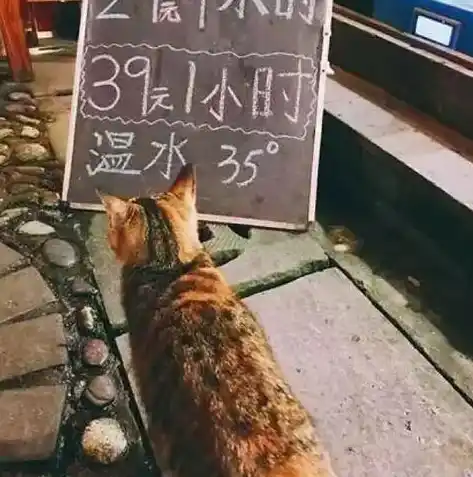 2 元 1 小时
39元1小时
温水 35°